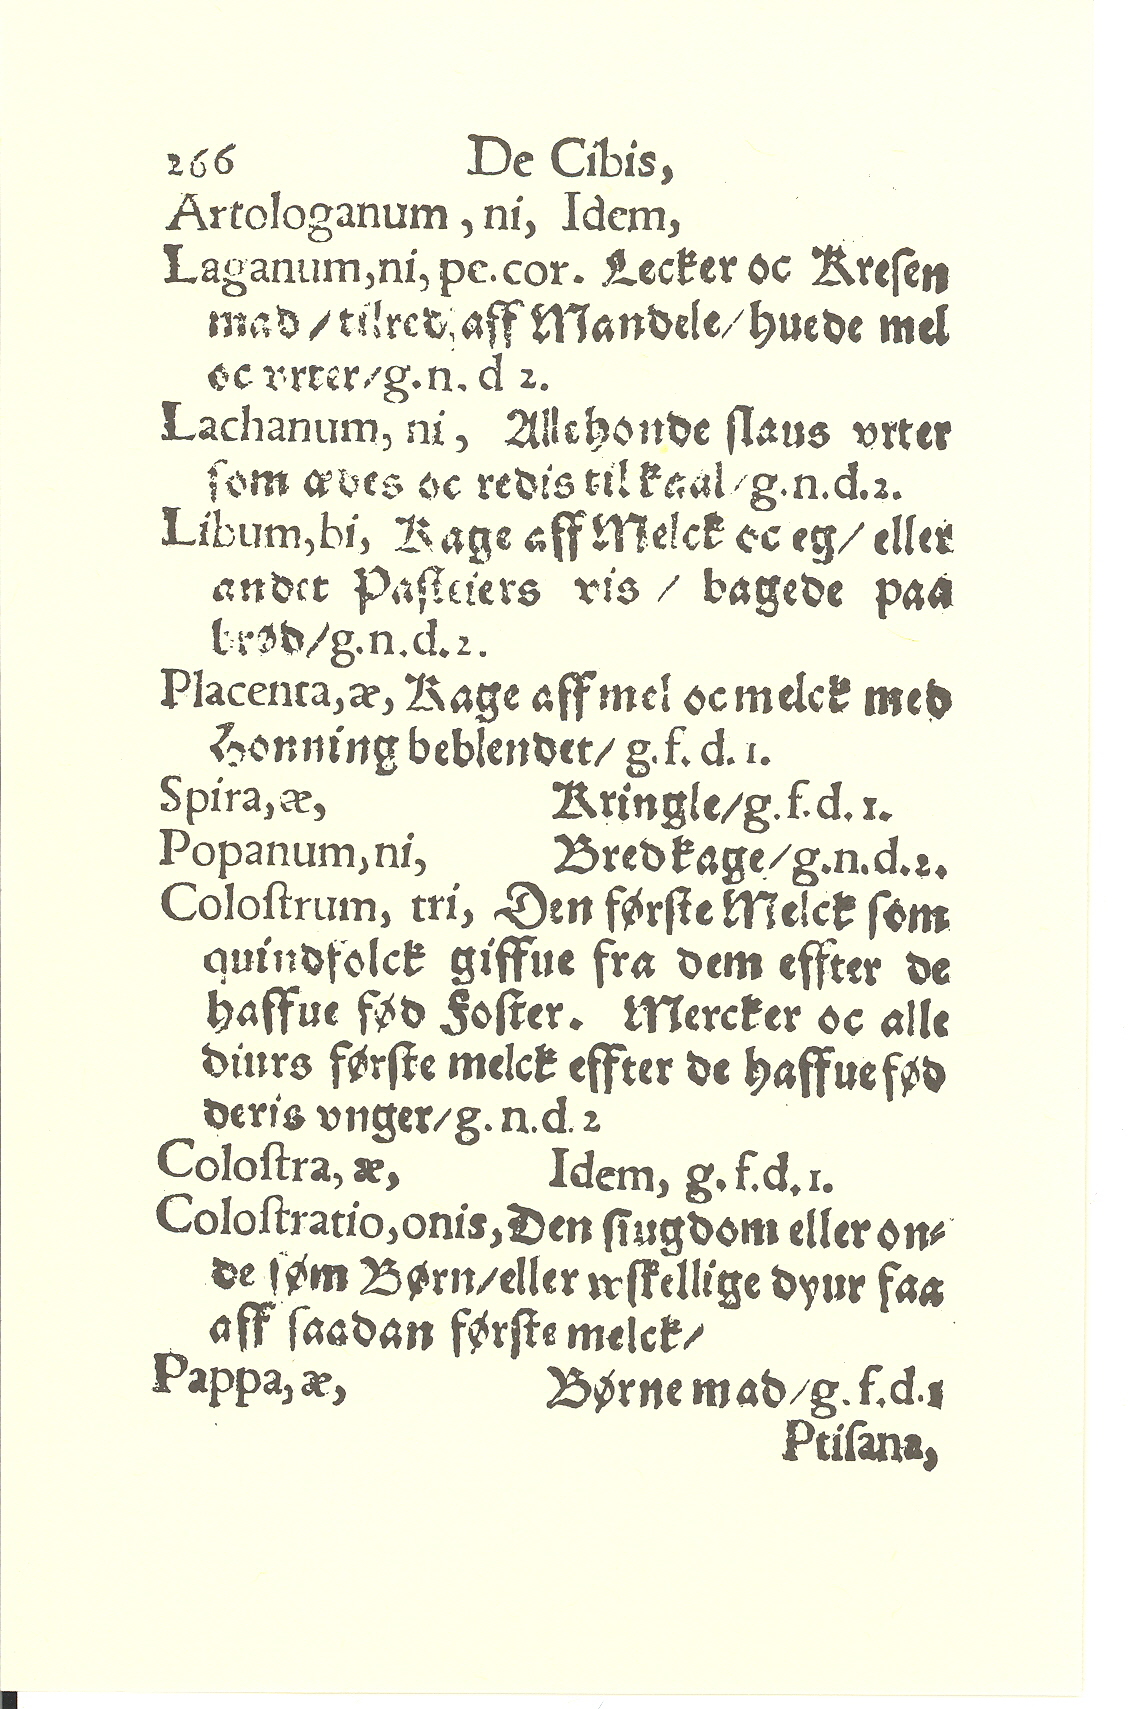 266 De Cibis,
Artologanum, ni, Idem,
Laganum, ni, pe. cor. Lecker oc Kresen
mad / tilred aff Mandele / huede mel
oc vrter / g. n. d 2.
Lachanum, ni, Allehonde slaus vrter
som ædes oc redis til kaal / g. n. d. 2.
Libum, bi, Kage aff Melck oc eg / eller
andet Pasteiers vis / bagede paa
brød / g. n. d. 2.
Placenta, æ, Kage aff mel oc melck med
Honning beblendet / g. f. d. 1.
Spira, æ, Kringle / g. f. d. 1.
Popanum, ni, Bredkage / g. n. d. 2.
Coloſtrum, tri, Den førſte Melck ſom
quindfolck giffue fra dem effter de
haffue fød Foſter. Mercker oc alle
diurs førſte melck effter de haffue fød
deris vnger / g. n. d. 2
Coloſtra, æ, Idem, g. f. d. 1.
Coloſtratio, onis, Den ſiugdom eller on⸗
de ſøm Børn / eller wſkellige dyur faa
aff ſaadan førſte melck /
Pappa, æ, Børne mad / g. f. d. 1
Ptiſana,